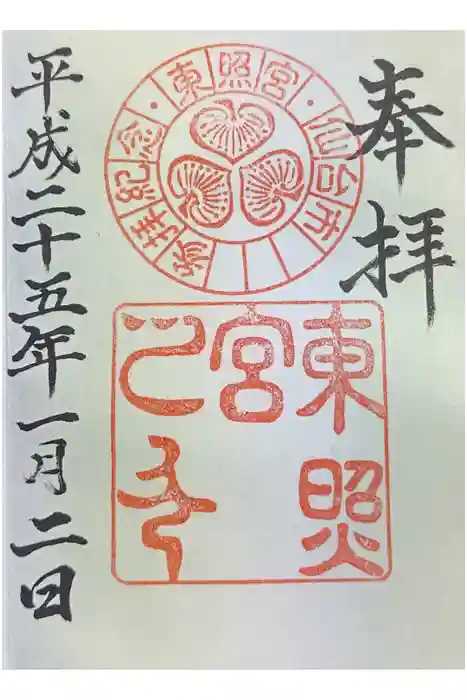 奉拝
東照宮
仙台市
参拝記念
東照
宮
平成二十五年一月二日